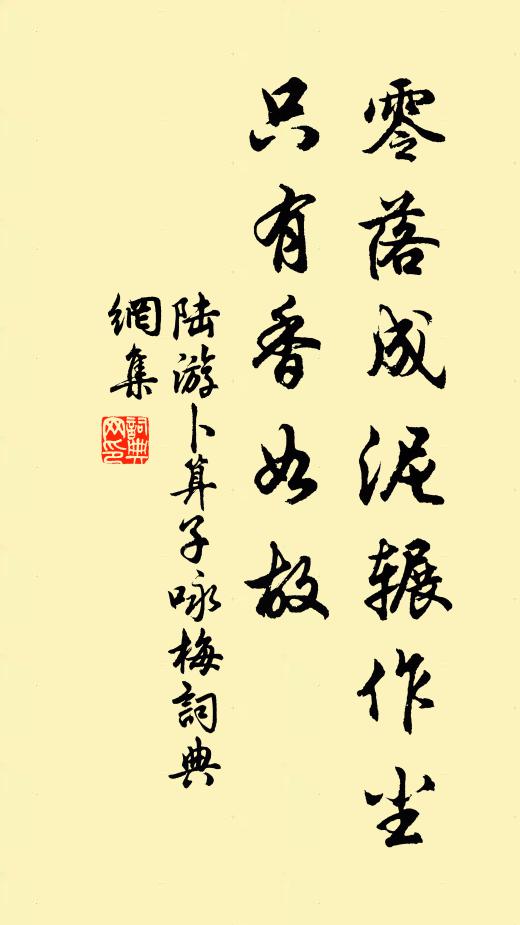 零落成泥辗作尘
只有香如故
陆游卜算子咏梅詞典
網集
詞典
网印